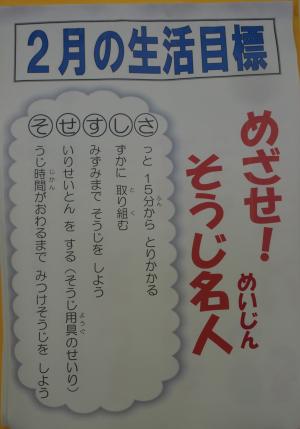 2月の生活目標
めざせ!
そうじ名人
めいじん
さっと 15分から とりかかる
ふん
しずかに 取り組む
と く
すみずみまで そうじを しよう
せいりせいとん を する(そうじ用具のせいり)
ようぐ
そうじ時間がおわるまで みつけそうじを しよう
じかん